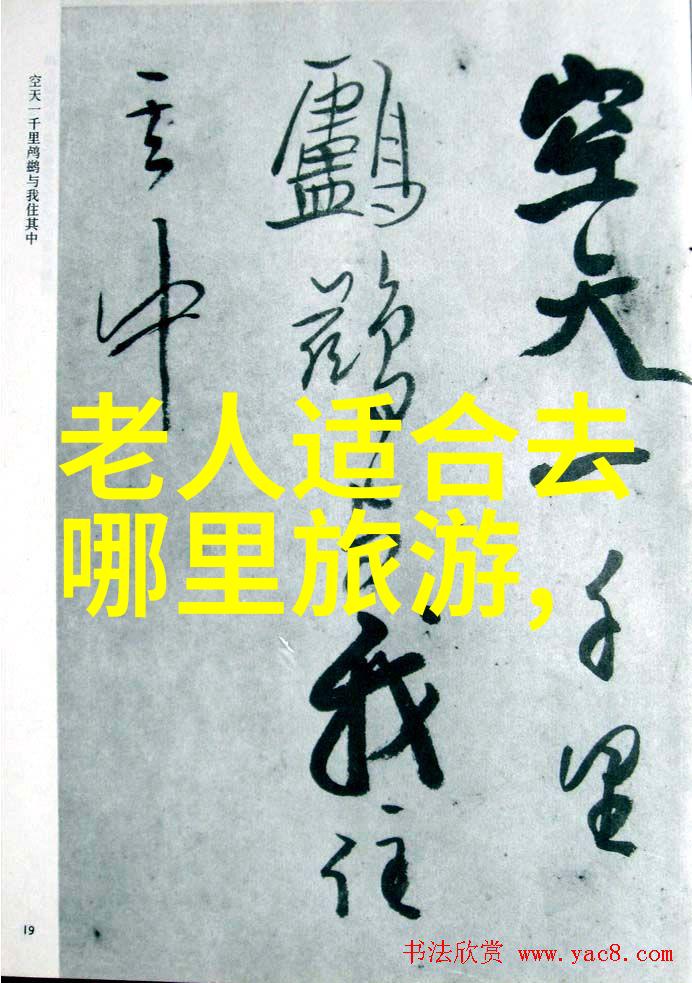 空天一千里
鸕鷀与我住
其中
空天一千里鸬鹚与我住其中
老人适合去
哪里旅游,
19
书法欣赏 www.yac8.com